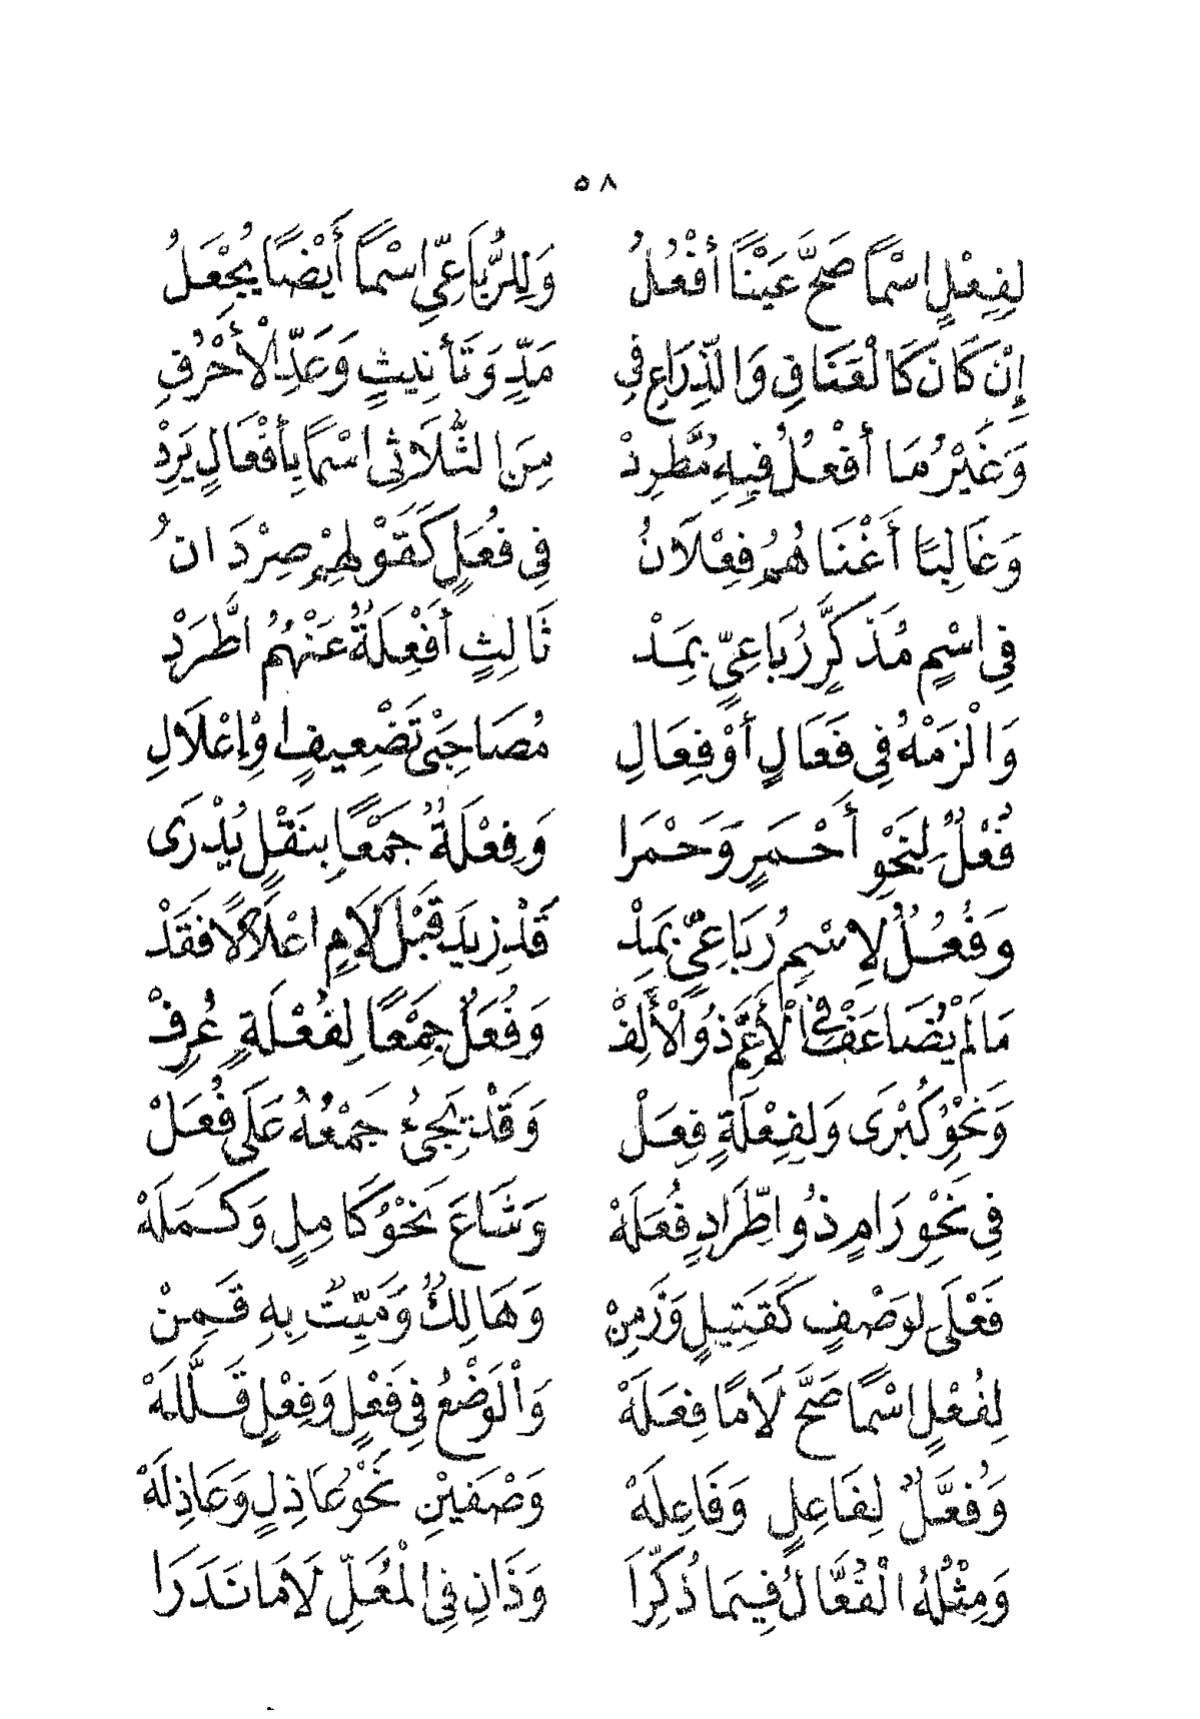 ٥٨
لِفِعْلٍ اسْمًا صَحَّ عَيْنًا أَفْعُلُ وَلِلرُّبَاعِيِّ اسْمًا أَيْضًا يُجْعَلُ
إِنْ كَانَ كَالْعَنَاقِ وَالذِّرَاعِ فِي مَدٍّ وَتَأْنِيثٍ وَعَدِّ الْأَحْرُفِ
وَغَيْرُ مَا أَفْعُلُ فِيهِ مُطَّرِدْ مِنَ الثُّلَاثِي اسْمًا بِأَفْعَالٍ يَرِدْ
وَغَالِبًا أَغْنَاهُمُ فِعْلَانُ فِي فُعَلٍ كَقَوْلِهِمْ صِرْدَانُ
فِي اسْمٍ مُذَكَّرٍ رُبَاعِيٍّ بِمَدْ ثَالِثٍ أَفْعِلَةُ عَنْهُمُ اطَّرَدْ
وَالْزَمْهُ فِي فَعَالٍ أَوْ فِعَالِ مُصَاحِبَيْ تَضْعِيفٍ اوْ إِعْلَالِ
فُعْلٌ لِنَحْوِ أَحْمَرٍ وَحَمْرَا وَفِعْلَةٌ جَمْعًا بِنَقْلٍ يُدْرَى
وَفُعُلٌ لِاسْمٍ رُبَاعِيٍّ بِمَدْ قَدْ زِيدَ قَبْلَ لَامٍ اعْلَالًا فَقَدْ
مَا لَمْ يُضَاعَفْ فِي الْأَعَمِّ ذُو الْأَلِفْ وَفُعَلٌ جَمْعًا لِفُعْلَةٍ عُرِفْ
وَنَحْوِ كُبْرَى وَلِفِعْلَةٍ فِعَلْ وَقَدْ يَجِيءُ جَمْعُهُ عَلَى فُعَلْ
فِي نَحْوِ رَامٍ ذُو اطِّرَادٍ فُعَلَهْ وَشَاعَ نَحْوُ كَامِلٍ وَكَمَلَهْ
فَعْلَى لِوَصْفٍ كَقَتِيلٍ وَزَمِنْ وَهَالِكٌ وَمَيِّتٌ بِهِ قَمِنْ
لِفُعْلٍ اسْمًا صَحَّ لَامًا فِعَلَهْ وَالْوَضْعُ فِي فَعْلٍ وَفِعْلٍ قَلَّلَهْ
وَفُعَّلٌ لِفَاعِلٍ وَفَاعِلَهْ وَصْفَيْنِ نَحْوُ عَاذِلٍ وَعَاذِلَهْ
وَمِثْلُهُ الْفُعَّالُ فِيمَا ذُكِّرَا وَذَانِ فِي الْمُعَلِّ لَامًا نَدَرَا